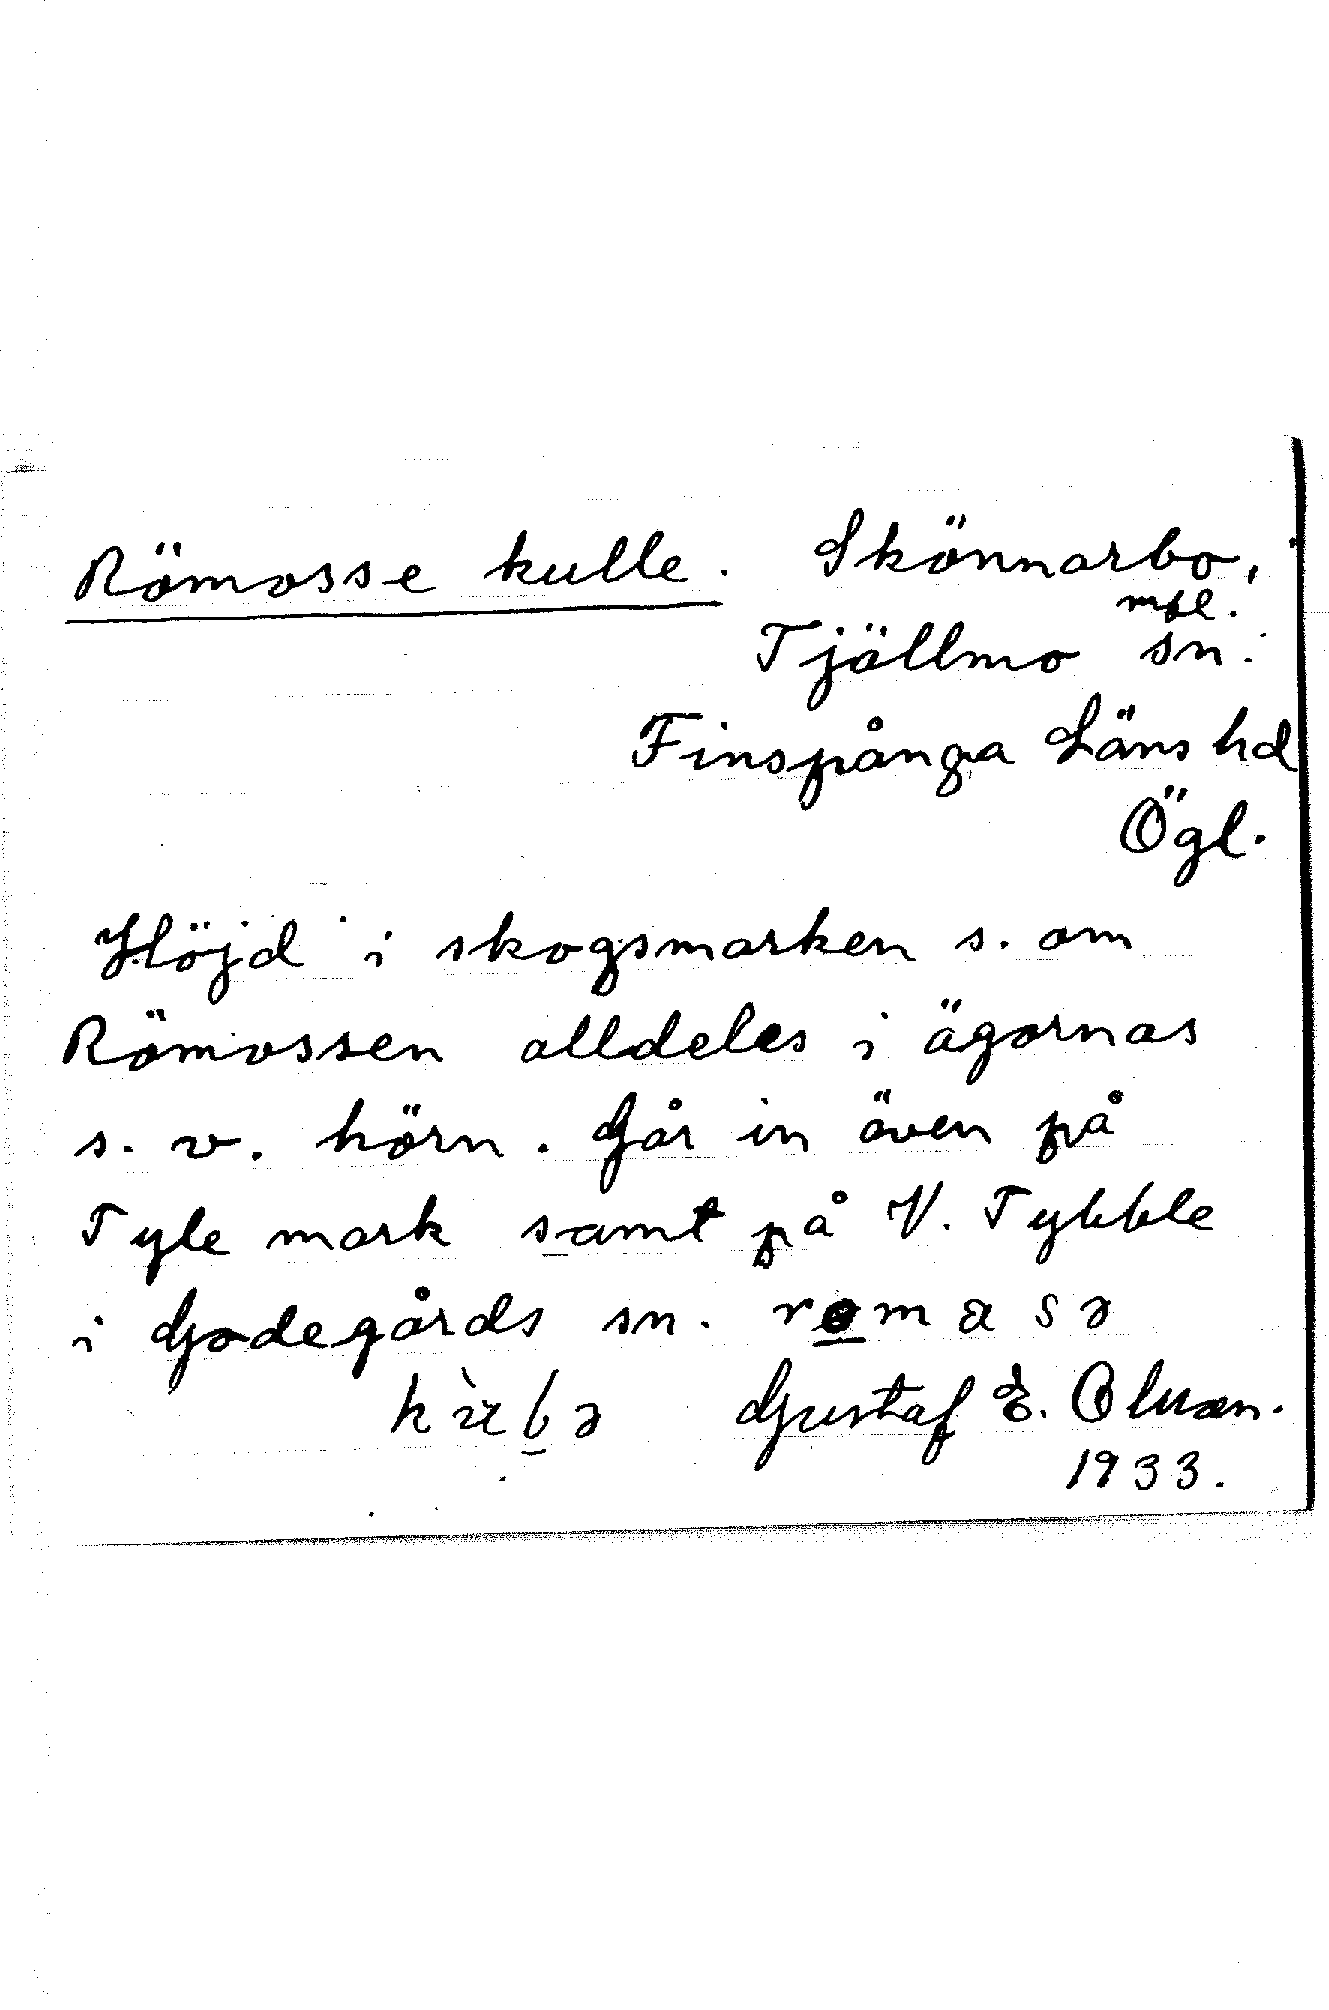 Römosse kulle. Skönnarbo,
mtl.
Tjällmo sn.
Finspånga Läns hd
Ögl.
Höjd i skogsmarken s. om
Römossen alldeles i ägornas
s. v. hörn. Går in även på
Tyle mark samt på V. Tybble
i Godegårds sn.
Gustaf E. Olsson.
1933.